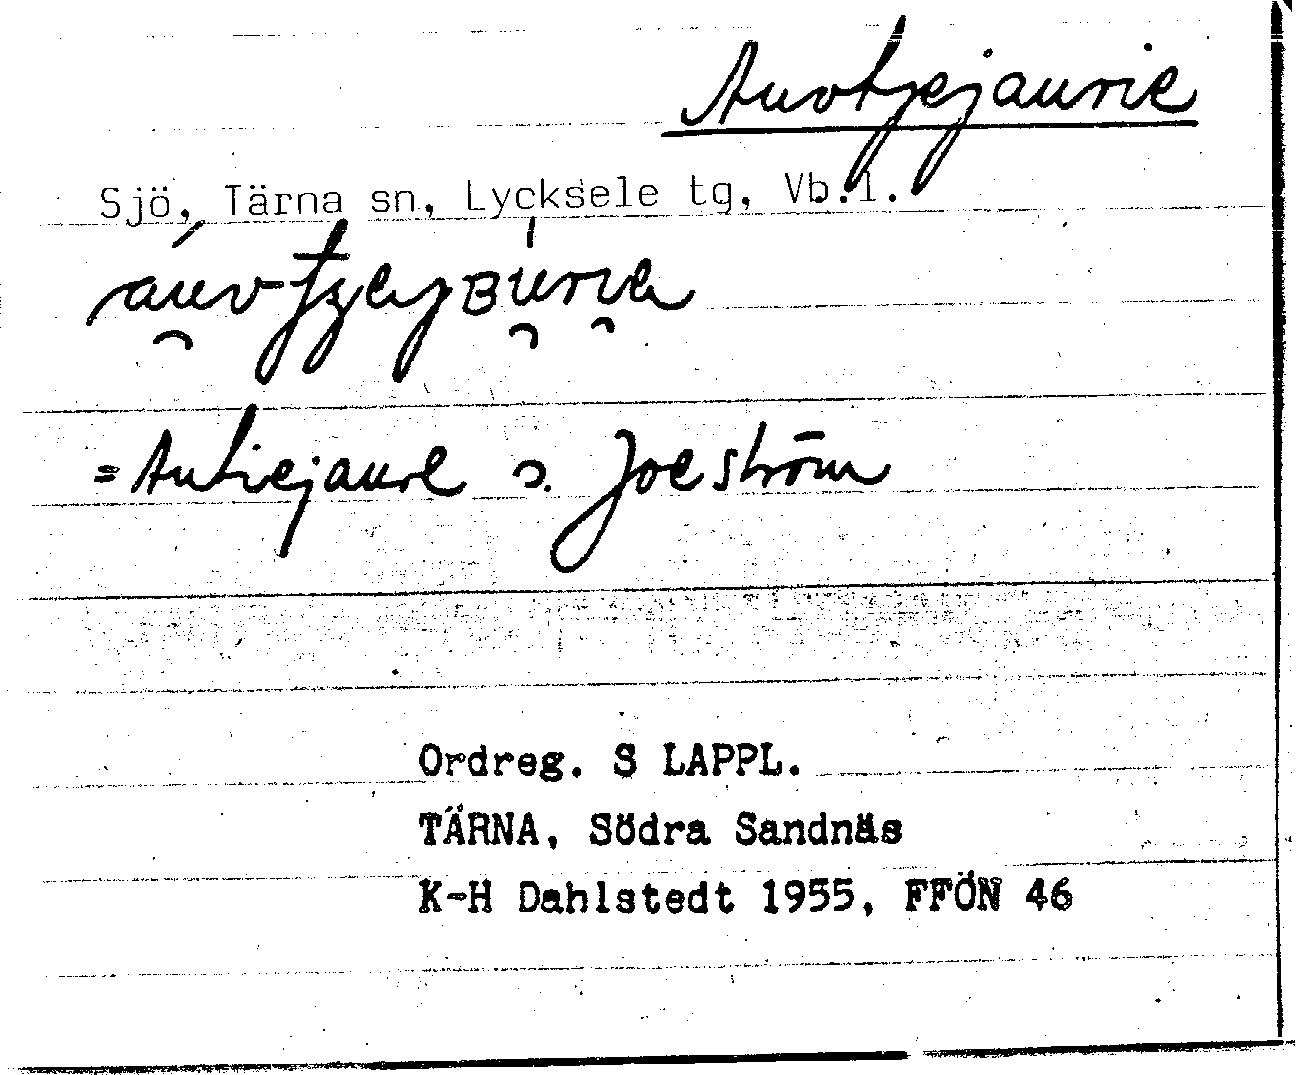 Auvtjejaurie
Sjö, Tärna sn, Lycksele tg, Vb.l.
= Autiejaure s. Joeström
Ordreg. S LAPPL.
TÄRNA, Södra Sandnäs
K-H Dahlstedt 1955, FFÖN 46